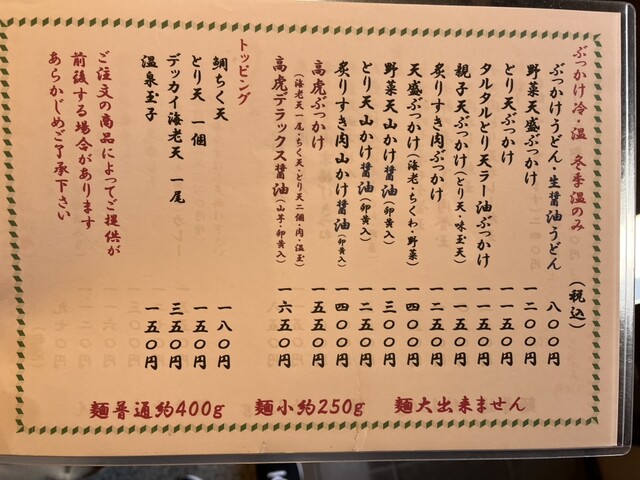 ぶっかけ冷・温 冬季温のみ (税込)
ぶっかけうどん・生醤油うどん 八〇〇円
野菜天盛ぶっかけ 一二〇〇円
とり天ぶっかけ 一一五〇円
タルタルとり天ラー油ぶっかけ 一一五〇円
親子天ぶっかけ(とり天・味玉天) 一一五〇円
炙りすき肉ぶっかけ 一二五〇円
天盛ぶっかけ(海老・ちくわ・野菜) 一四〇〇円
野菜天山かけ醤油(卵黄入) 一三〇〇円
とり天山かけ醤油(卵黄入) 一二五〇円
炙りすき肉山かけ醤油(卵黄入) 一四〇〇円
高虎ぶっかけ 一五五〇円
(海老天一尾・ちく天・とり天二個・肉・温玉)
高虎デラックス醤油(山芋・卵黄入) 一六五〇円
トッピング
鯛ちく天 一八〇円
とり天 一個 一五〇円
デッカイ海老天 一尾 三五〇円
温泉玉子 一五〇円
ご注文の商品によってご提供が
前後する場合があります
あらかじめご了承下さい
麺普通約400g 麺小約250g 麺大出来ません